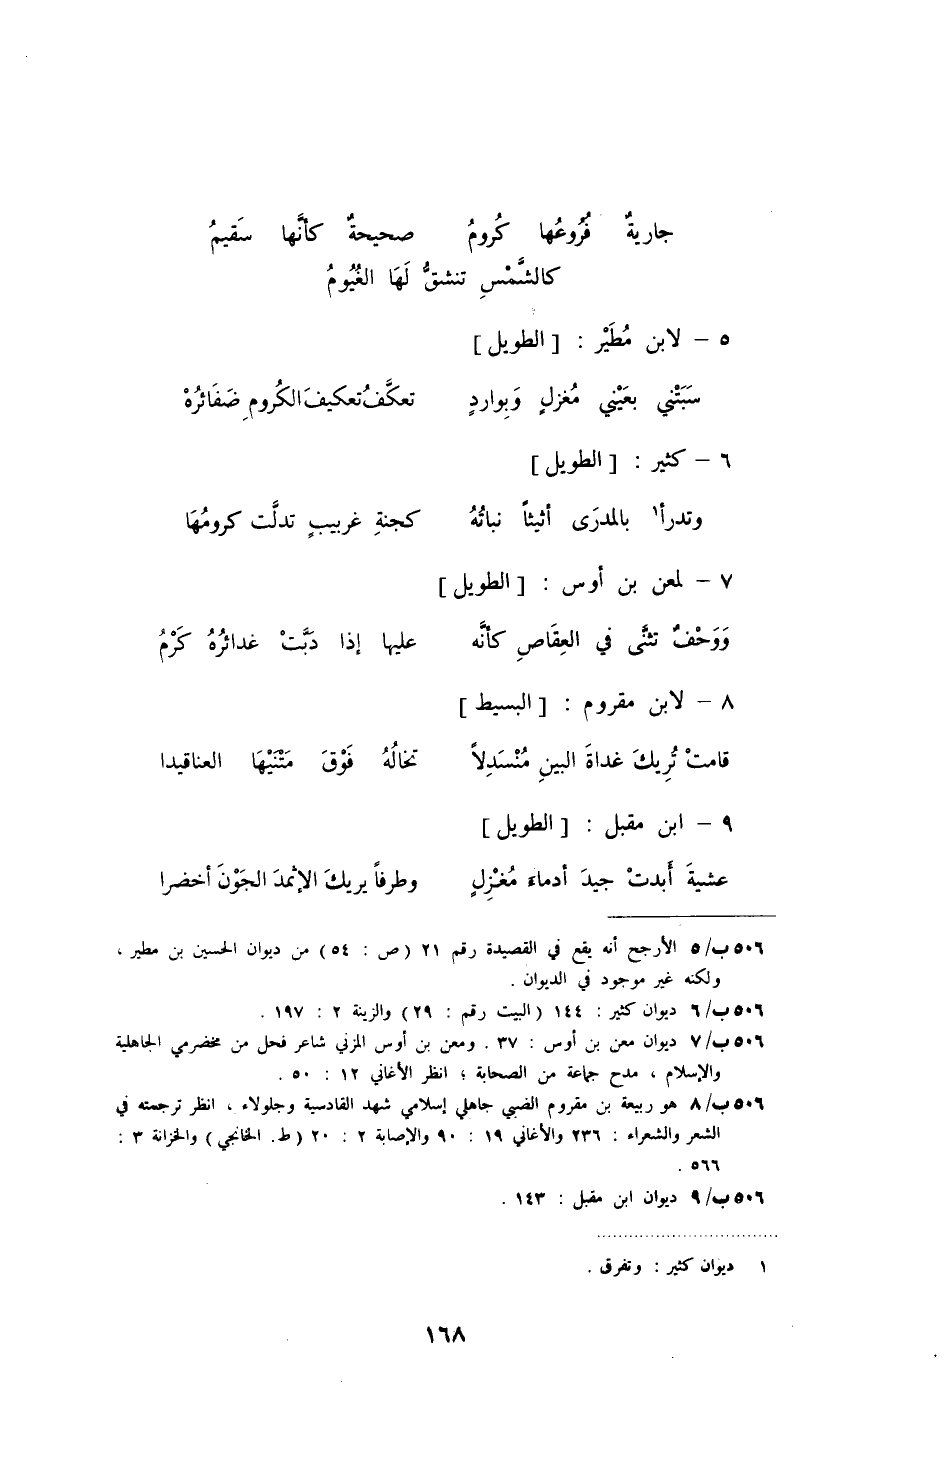 جاريةٌ فُرُوعُها كُرومُ صحيحةٌ كأنَّها سَقيمُ
كالشَّمْسِ تنشقُّ لَهَا الغُيُومُ
٥ – لابن مُطَيْر : [ الطويل ]
سَبَتْني بعَيْني مُغزلٍ وَبِواردٍ تعكَّفُ تعكيفَ الكُرومِ ضَفَائرُهْ
٦ – كثير : [ الطويل ]
وتدرأ١ بالمدرَى أثيثاً نباتُهُ كجنةِ غربيبٍ تدلَّت كرومُهَا
٧ – لمعن بن أوس : [ الطويل ]
وَوَحْفٌ تثنَّى في العِقَاصِ كأنَّه عليها إذا دَبَّتْ غدائرُهُ كَرْمُ
٨ – لابن مقروم : [ البسيط ]
قامتْ تُرِيكَ غداةَ البينِ مُنْسَدِلاً تخالُهُ فَوْقَ مَتْنَيْهَا العناقيدا
٩ – ابن مقبل : [ الطويل ]
عشيةَ أَبدتْ جيدَ أدماءَ مُغْزِلٍ وطرفاً يريكَ الإثمدَ الجَوْنَ أخضرا
٥٠٦ب/٥ الأرجح أنه يقع في القصيدة رقم ٢١ (ص : ٥٤) من ديوان الحسين بن مطير ،
ولكنه غير موجود في الديوان .
٥٠٦ب/٦ ديوان كثير : ١٤٤ (البيت رقم : ٢٩) والزينة ٢ : ١٩٧ .
٥٠٦ب/٧ ديوان معن بن أوس : ٣٧ . ومعن بن أوس المزني شاعر فحل من مخضرمي الجاهلية
والإسلام ، مدح جماعة من الصحابة ؛ انظر الأغاني ١٢ : ٥٠ .
٥٠٦ب/٨ هو ربيعة بن مقروم الضبي جاهلي إسلامي شهد القادسية وجلولاء ، انظر ترجمته في
الشعر والشعراء : ٢٣٦ والأغاني ١٩ : ٩٠ والإصابة ٢ : ٢٠ (ط. الخانجي) والخزانة ٣ :
٥٦٦ .
٥٠٦ب/٩ ديوان ابن مقبل : ١٤٣ .
١ ديوان كثير : وتفرق .
١٦٨